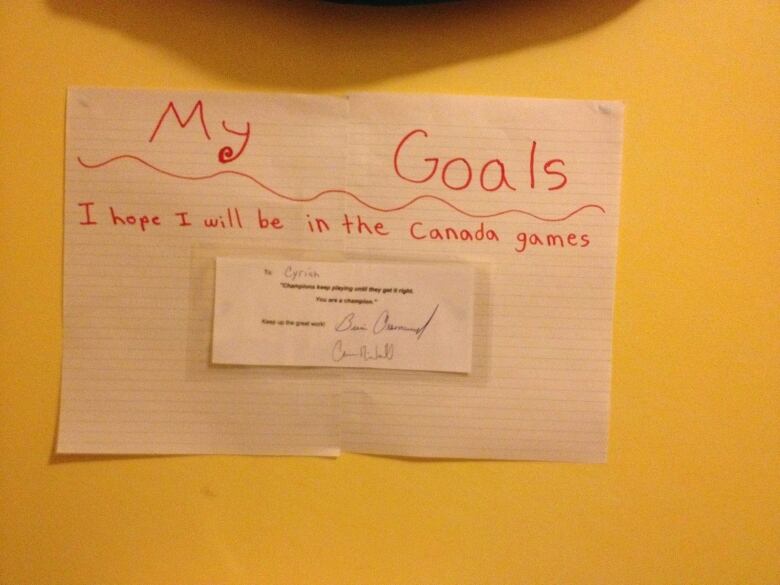 My Goals
I hope I will be in the Canada games
To: Cyrish
"Champions keep playing until they get it right.
You are a champion."
Keep up the great work!